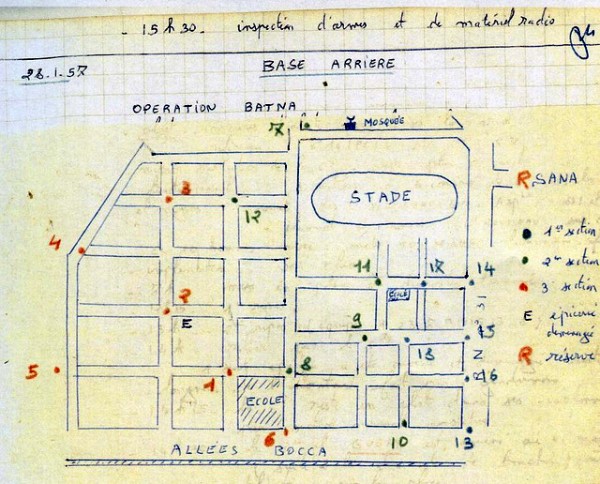 - 15 h 30 - inspection d'armes et de matériel radio
28.1.57
BASE ARRIERE
OPERATION BATNA
7
MOSQUÉE
R SANA
3
STADE
12
1ère section
4
2e section
11
12
14
3 section
ECOLE
2
E
E epicerie
9
13
15
R réserve
5
1
8
16
ECOLE
6
10
13
ALLÉES BOCCA